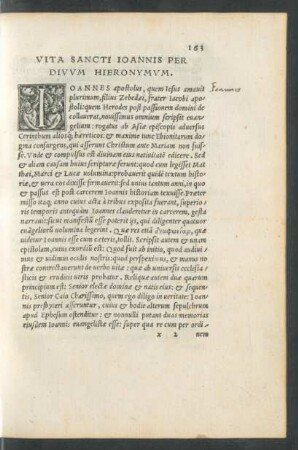 163
VITA SANCTI IOANNIS PER
DIVVM HIERONYMVM.
IOANNES apostolus, quem Iesus amauit
Ioannes
plurimum, filius Zebedæi, frater Iacobi apo-
stoli: quem Herodes post passionem domini de
collauerat, nouissimus omnium scripsit euan-
gelium: rogatus ab Asiæ episcopis aduersus
Cerinthum aliosq; hæreticos: & maxime tunc Ebionitarum do
gma consurgens, qui asserunt Christum ante Mariam non fuis
se. Vnde & compulsus est diuinam eius natiuitatē edicere. Sed
& aliam causam huius scripturæ ferunt: quod cum legisset Mat
thæi, Marci & Lucæ uolumina: probauerit quidē textum histo
riæ, & uera eos dixisse firmauerit: sed unius tantum anni, in quo
& passus est post carcerem Ioannis historiam texuisse. Præter
misso itaq; anno, cuius acta à tribus exposita fuerant, superio
ris temporis antequam Ioannes clauderetur in carcerem, gesta
narrauit: sicut manifestū esse poterit ijs, qui diligenter quatuor
euāgeliorū uolumina legerint. Quæ res etiā
quæ
uidetur Ioannis esse cum cæteris, tollit. Scripsit autem & unam
epistolam, cuius exordiū est: Quod fuit ab initio, quod audiui-
mus & uidimus oculis nostris: quod perspeximus, & manus no
stræ contrectauerunt de uerbo uitæ: quæ ab uniuersis ecclesia
sticis & eruditis uiris probatur. Reliquæ autem duæ quarum
principium est: Senior electæ dominæ & natis eius: & sequen-
tis, Senior Caio Charissimo, quem ego diligo in ueritate: Ioan-
nis presbyteri asseruntur, cuius & hodie alterum sepulchrum
apud Ephesum ostenditur: & nonnulli putant duas memorias
eiusdem Ioannis euangelistæ esse: super qua re cum per ordi-
x 2 nem